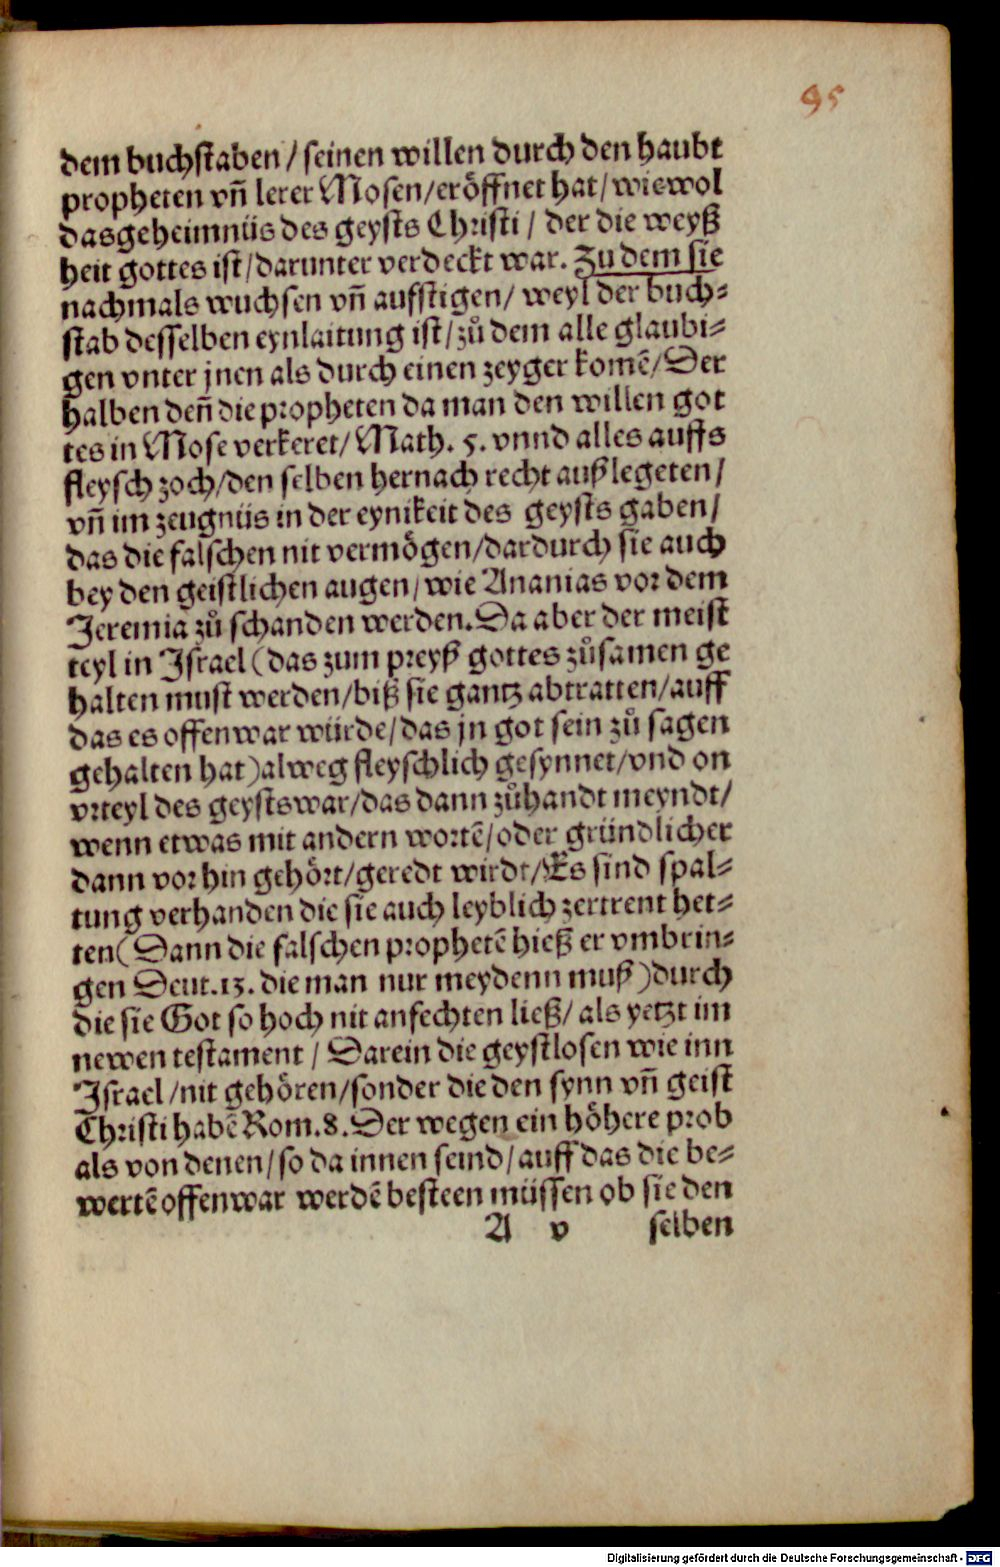 95
dem buchstaben / seinen willen durch den haubt
propheten vñ lerer Mosen/eröffnet hat/ wiewol
dasgeheimnüs des geysts Christi / der die weyß
heit gottes ist/darunter verdeckt war. Zu dem sie
nachmals wuchsen vñ auffstigen/ weyl der buch⸗
stab desselben eynlaitung ist/zů dem alle glaubi⸗
gen vnter jnen als durch einen zeyger komē/Der
halben deñ die propheten da man den willen got
tes in Mose verkeret/ Math. 5. vnnd alles auffs
fleysch zoch/den selben hernach recht außlegeten/
vñ im zeugnüs in der eynikeit des geysts gaben/
das die falschen nit vermögen/dardurch sie auch
bey den geistlichen augen/wie Ananias vor dem
Jeremia zů schanden werden.Da aber der meist
teyl in Israel (das zum preyß gottes zůsamen ge
halten must werden/biß sie gantz abtratten/auff
das es offenwar würde/das jn got sein zů sagen
gehalten hat)alweg fleyschlich gesynnet/vnd on
vrteyl des geystswar/das dann zůhandt meyndt/
wenn etwas mit andern wortē/oder gründlicher
dann vorhin gehört/geredt wirdt/Es sind spal⸗
tung verhanden die sie auch leyblich zertrent het⸗
ten(Dann die falschen prophetē hieß er vmbrin⸗
gen Deut.13. die man nur meydenn muß)durch
die sie Got so hoch nit anfechten ließ/ als yetzt im
newen testament / Darein die geystlosen wie inn
Israel /nit gehören/sonder die den synn vñ geist
Christi habē Rom.8.Der wegen ein höhere prob
als von denen/so da innen seind/auff das die be⸗
wertē offenwar werdē besteen müssen ob sie den
A v selben
Digitalisierung gefördert durch die Deutsche Forschungsgemeinschaft - DFG